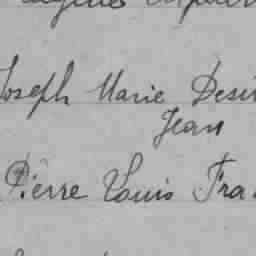 Joseph Marie Desi
Jean
Pierre Louis Fra